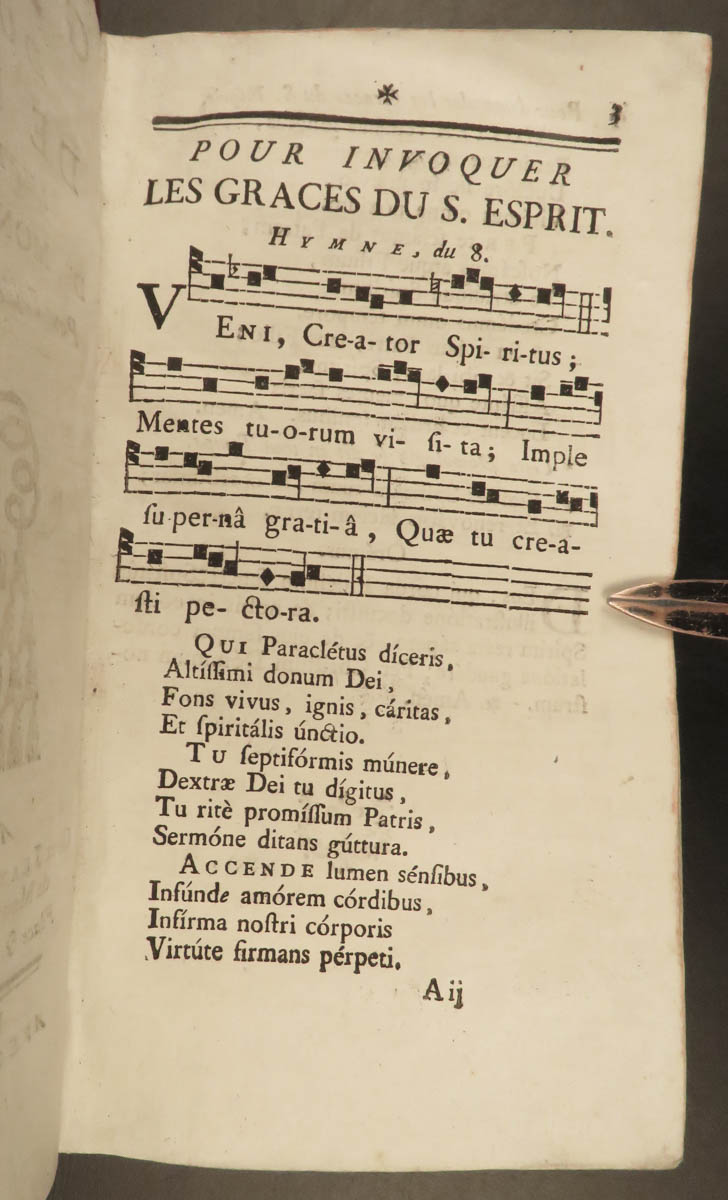 3
POUR INVOQUER
LES GRACES DU S. ESPRIT.
HYMNE, du 8.
VENI, Cre-a-tor Spi-ri-tus ;
Mentes tu-o-rum vi- ſi-ta; Imple
ſu per-nâ gra-ti-â , Quæ tu cre-a-
ſti pe-cto-ra.
QUI Paraclétus díceris,
Altíſſimi donum Dei,
Fons vivus, ignis, cáritas,
Et ſpiritális únctio.
TU ſeptifórmis múnere,
Dextræ Dei tu dígitus,
Tu ritè promíſſum Patris,
Sermóne ditans gúttura.
ACCENDE lumen sénſibus,
Infúnde amórem córdibus,
Infírma noſtri córporis
Virtúte firmans pérpeti.
A ij